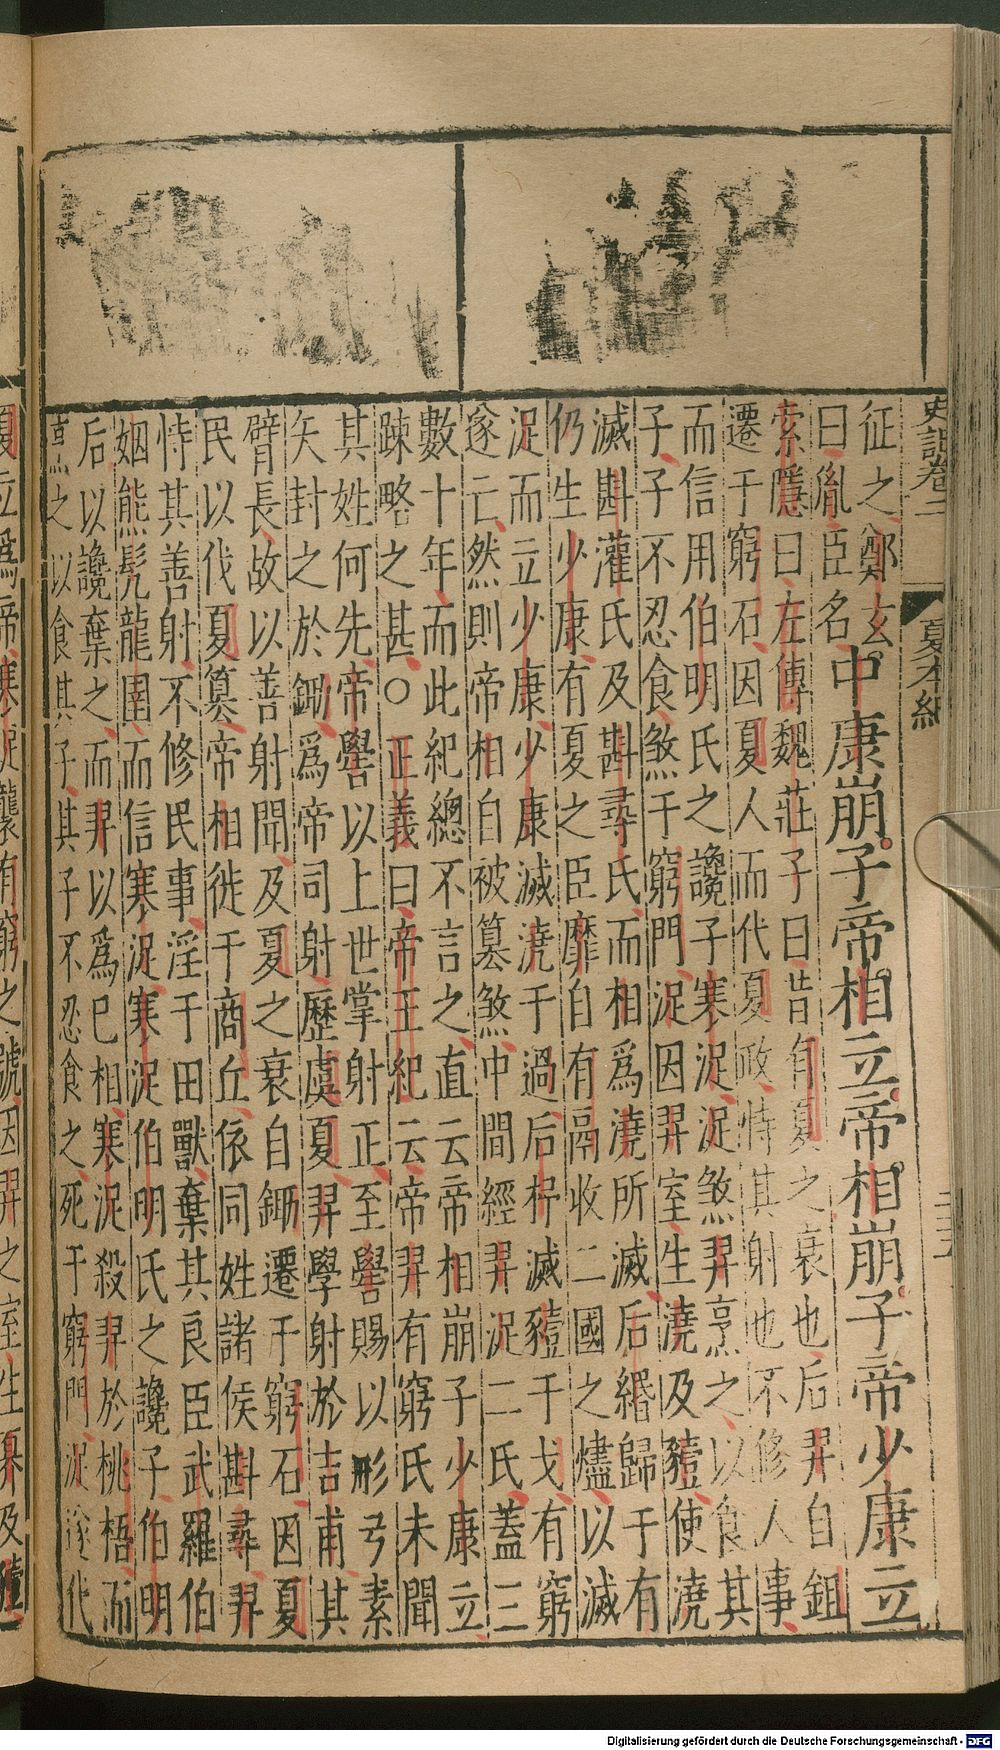 史記卷二　夏本紀
征之鄭玄
曰胤臣名
中康崩子帝相立帝相崩子帝少康立
索隱曰左傳魏莊子曰昔有夏之衰也后羿自鉏
遷于窮石因夏人而代夏政恃其射也不修人事
而信用伯明氏之讒子寒浞浞煞羿烹之以食其
子子不忍食煞于窮門浞因羿室生澆及豷使澆
滅斟灌氏及斟尋氏而相爲澆所滅后緡歸于有
仍生少康有夏之臣靡自有鬲收二國之燼以滅
浞而立少康少康滅澆于過后杼滅豷于戈有窮
遂亡然則帝相自被篡煞中間經羿浞二氏蓋三
數十年而此紀總不言之直云帝相崩子少康立
踈略之甚○正義曰帝王紀云帝羿有窮氏未聞
其姓何先帝嚳以上世掌射正至嚳賜以彤弓素
矢封之於鋤爲帝司射歷虞夏羿學射於吉甫其
臂長故以善射聞及夏之衰自鋤遷于窮石因夏
民以伐夏篡帝相徙于商丘依同姓諸侯斟尋羿
恃其善射不修民事淫于田獸棄其良臣武羅伯
姻熊髡龍圉而信寒浞寒浞伯明氏之讒子伯明
后以讒棄之而羿以爲己相寒浞殺羿於桃梧而
烹之以食其子其子不忍食之死于窮門浞遂代
夏立爲帝寒浞襲有窮之號因羿之室生奡及豷
Digitalisierung gefördert durch die Deutsche Forschungsgemeinschaft - DFG